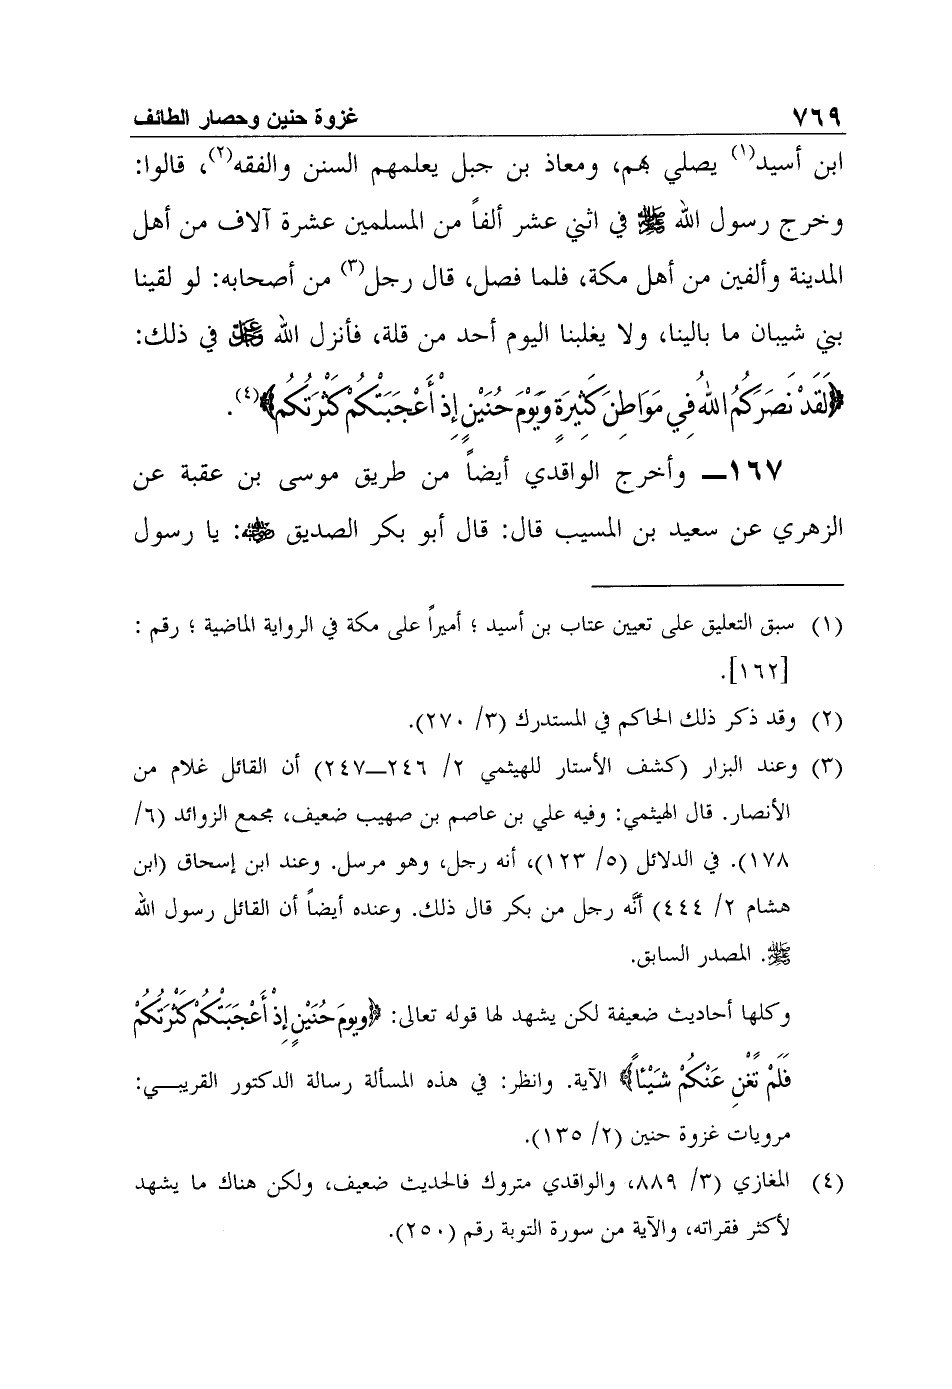 ٧٦٩ غزوة حنين وحصار الطائف
ابن أسيد(١) يصلي بهم، ومعاذ بن جبل يعلمهم السنن والفقه(٢)، قالوا:
وخرج رسول الله ﷺ في اثني عشر ألفاً من المسلمين عشرة آلاف من أهل
المدينة وألفين من أهل مكة، فلما فصل، قال رجل(٣) من أصحابه: لو لقينا
بني شيبان ما بالينا، ولا يغلبنا اليوم أحد من قلة، فأنزل الله ﷻ في ذلك:
﴿لَقَدْ نَصَرَكُمُ اللهُ فِي مَوَاطِنَ كَثِيرَةٍ وَيَوْمَ حُنَيْنٍ إِذْ أَعْجَبَتْكُمْ كَثْرَتُكُمْ﴾(٤).
١٦٧ـ وأخرج الواقدي أيضاً من طريق موسى بن عقبة عن
الزهري عن سعيد بن المسيب قال: قال أبو بكر الصديق ﷺ: يا رسول
(١) سبق التعليق على تعيين عتاب بن أسيد ؛ أميراً على مكة في الرواية الماضية ؛ رقم :
[١٦٢].
(٢) وقد ذكر ذلك الحاكم في المستدرك (٣/ ٢٧٠).
(٣) وعند البزار (كشف الأستار للهيثمي ٢/ ٢٤٦ــ٢٤٧) أن القائل غلام من
الأنصار. قال الهيثمي: وفيه علي بن عاصم بن صهيب ضعيف، مجمع الزوائد (٦/
١٧٨). في الدلائل (٥/ ١٢٣)، أنه رجل، وهو مرسل. وعند ابن إسحاق (ابن
هشام ٢/ ٤٤٤) أنَّه رجل من بكر قال ذلك. وعنده أيضاً أن القائل رسول الله
ﷺ. المصدر السابق.
وكلها أحاديث ضعيفة لكن يشهد لها قوله تعالى: ﴿ويومَ حُنَيْنٍ إِذْ أَعْجَبَتْكُمْ كَثْرَتُكُمْ
فَلَمْ تُغْنِ عَنْكُمْ شَيْئاً﴾ الآية. وانظر: في هذه المسألة رسالة الدكتور القريبـي:
مرويات غزوة حنين (٢/ ١٣٥).
(٤) المغازي (٣/ ٨٨٩، والواقدي متروك فالحديث ضعيف، ولكن هناك ما يشهد
لأكثر فقراته، والآية من سورة التوبة رقم (٢٥٠).